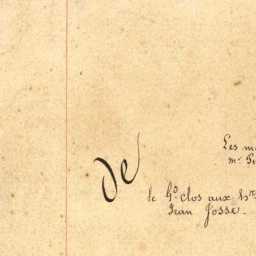 Les m
Mr
de
le Gd clos aux h
Jean Josse.